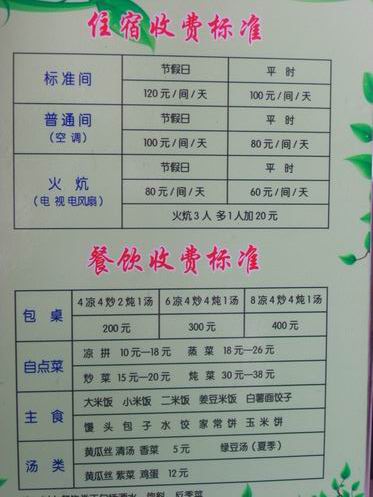 住宿收费标准
标准间 节假日 平 时
120 元/间/天 100 元/间/天
普通间（空 调） 节假日 平 时
100 元/间/天 80 元/间/天
火 炕（电 视 电风扇） 节假日 平 时
80 元/间/天 60 元/间/天
火炕3人 多1人加20元
餐饮收费标准
包 桌 4凉4炒2炖1汤 6凉4炒4炖1汤 8凉4炒4炖1汤
200 元 300 元 400 元
自点菜 凉 拼 10元—18元 蒸 菜 18—26元
炒 菜 15—20元 炖 菜 30元—38元
主 食 大米饭 小米饭 二米饭 姜豆米饭 白薯面饺子
馒 头 包 子 水 饺 家 常 饼 玉 米 饼
汤 类 黄瓜丝 清汤 香菜 5元 绿豆汤（夏季）
黄瓜丝 紫菜 鸡蛋 12元